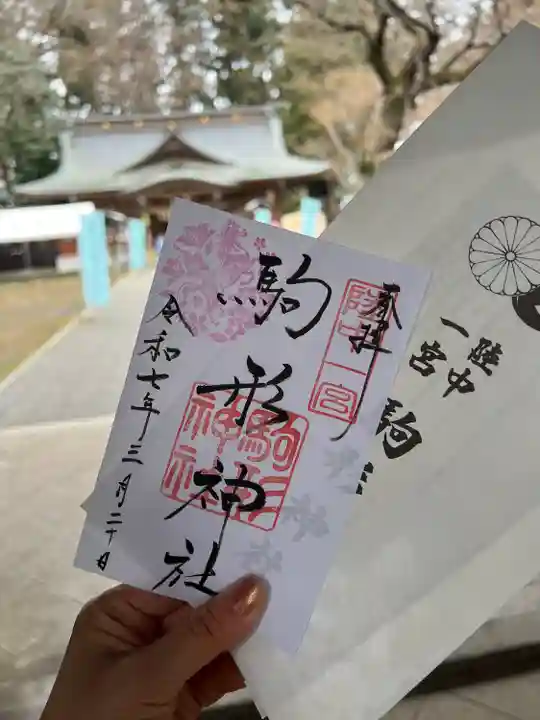 奉拝
陸中一宮
駒形神社
駒形
神社
令和七年三月二十日
陸中
一宮
駒